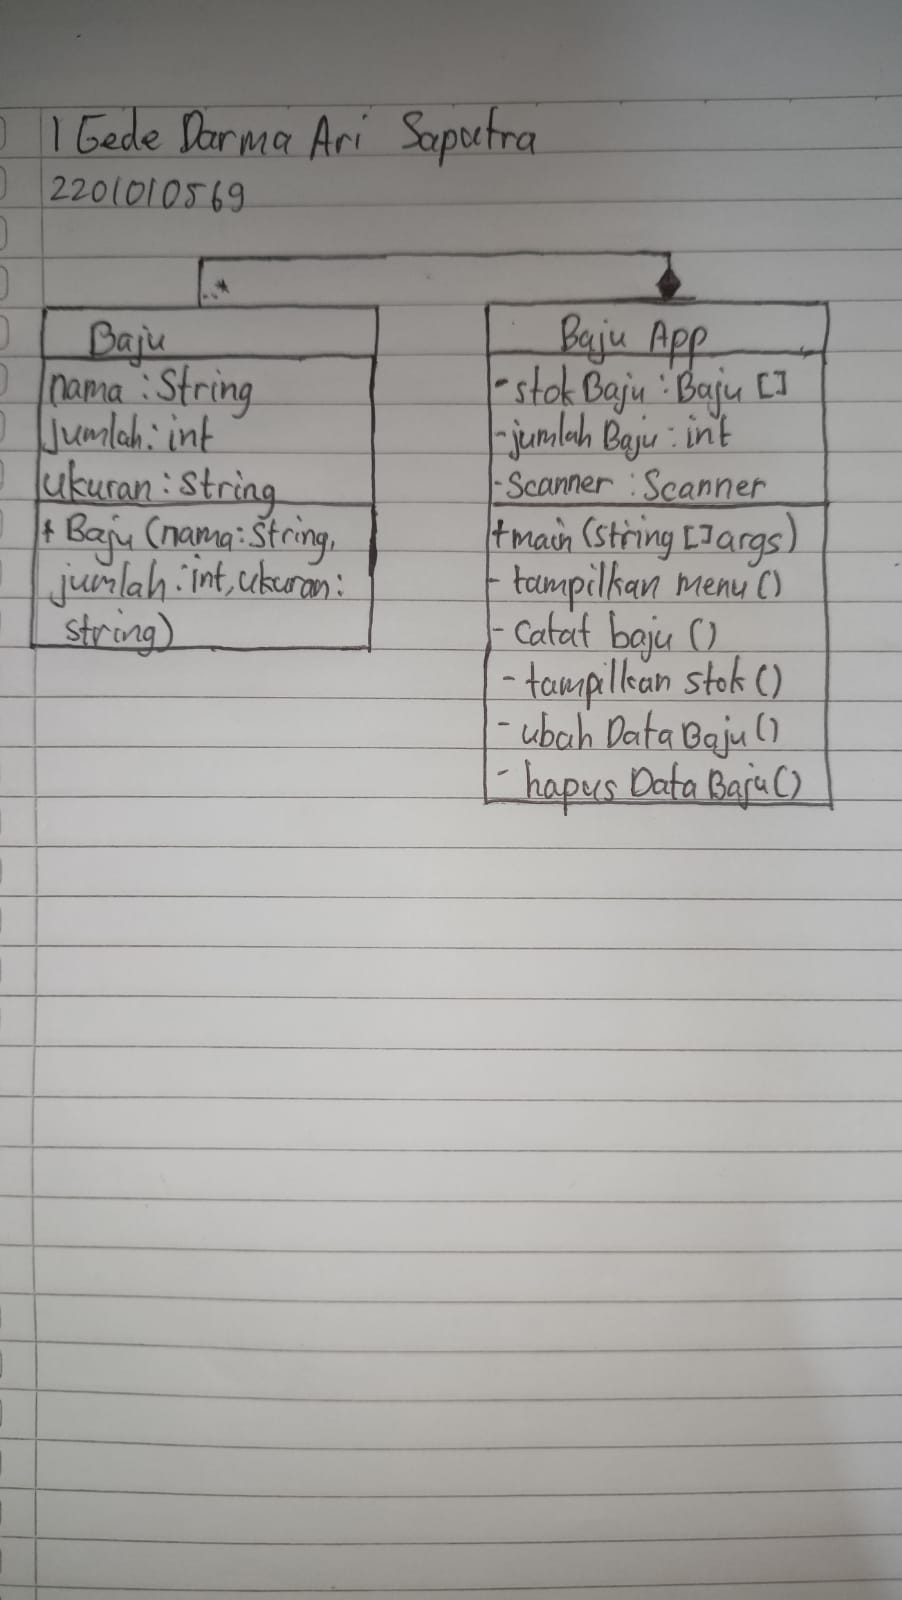 I Gede Darma Ari Saputra
2201010569
..*
Baju
nama : String
Jumlah : int
ukuran : String
+ Baju (nama : String,
jumlah : int, ukuran :
string)
Baju App
- stok Baju : Baju []
- jumlah Baju : int
- Scanner : Scanner
+ main (String [] args)
- tampilkan menu ()
- Catat baju ()
- tampilkan stok ()
- ubah Data Baju ()
- hapus Data Baju ()